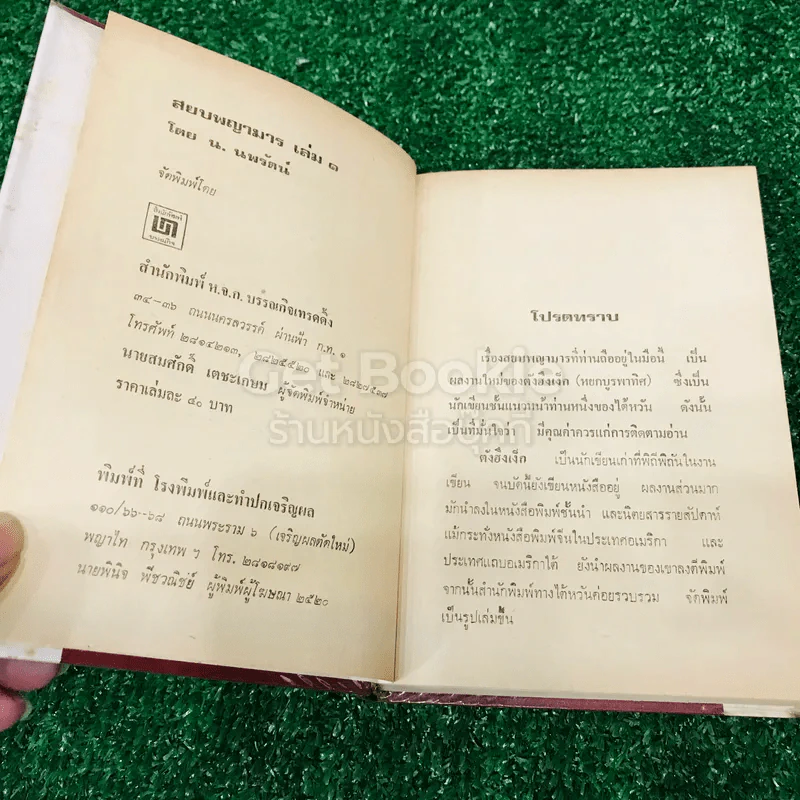 สยบพญามาร เล่ม ๑
โดย น. นพรัตน์
จัดพิมพ์โดย
สำนักพิมพ์ ห.จ.ก. บรรณกิจเทรดดิ้ง
๓๔–๓๖ ถนนนครสวรรค์ ผ่านฟ้า ก.ท. ๑
โทรศัพท์ ๒๘๑๔๒๑๓, ๒๘๒๕๕๒๐ และ ๒๘๒๗๕๓๗
นายสมศักดิ์ เตชะเกษม ผู้จัดพิมพ์จำหน่าย
ราคาเล่มละ ๔๐ บาท
พิมพ์ที่ โรงพิมพ์และทำปกเจริญผล
๑๑๐/๖๖–๖๘ ถนนพระราม ๖ (เจริญผลตัดใหม่)
พญาไท กรุงเทพ ฯ โทร. ๒๘๑๘๑๙๗
นายพินิจ พืชวณิชย์ ผู้พิมพ์ผู้โฆษณา ๒๕๒๐
โปรดทราบ
เรื่องสยบพญามารที่ท่านถืออยู่ในมือนี้ เป็น
ผลงานใหม่ของตังฮึ้งเง็ก (หยกบูรพาทิศ) ซึ่งเป็น
นักเขียนชั้นแนวหน้าท่านหนึ่งของไต้หวัน ดังนั้น
เป็นที่มั่นใจว่า มีคุณค่าควรแก่การติดตามอ่าน
ตังฮึ้งเง็ก เป็นนักเขียนเก่าที่พิถีพิถันในงาน
เขียน จนบัดนี้ยังเขียนหนังสืออยู่ ผลงานส่วนมาก
มักนำลงในหนังสือพิมพ์ชั้นนำ และนิตยสารรายสัปดาห์
แม้กระทั่งหนังสือพิมพ์จีนในประเทศอเมริกา และ
ประเทศแถบอเมริกาใต้ ยังนำผลงานของเขาลงตีพิมพ์
จากนั้นสำนักพิมพ์ทางไต้หวันค่อยรวบรวม จัดพิมพ์
เป็นรูปเล่มขึ้น
Get Bookie
ร้านหนังสือบุ๊กกี้